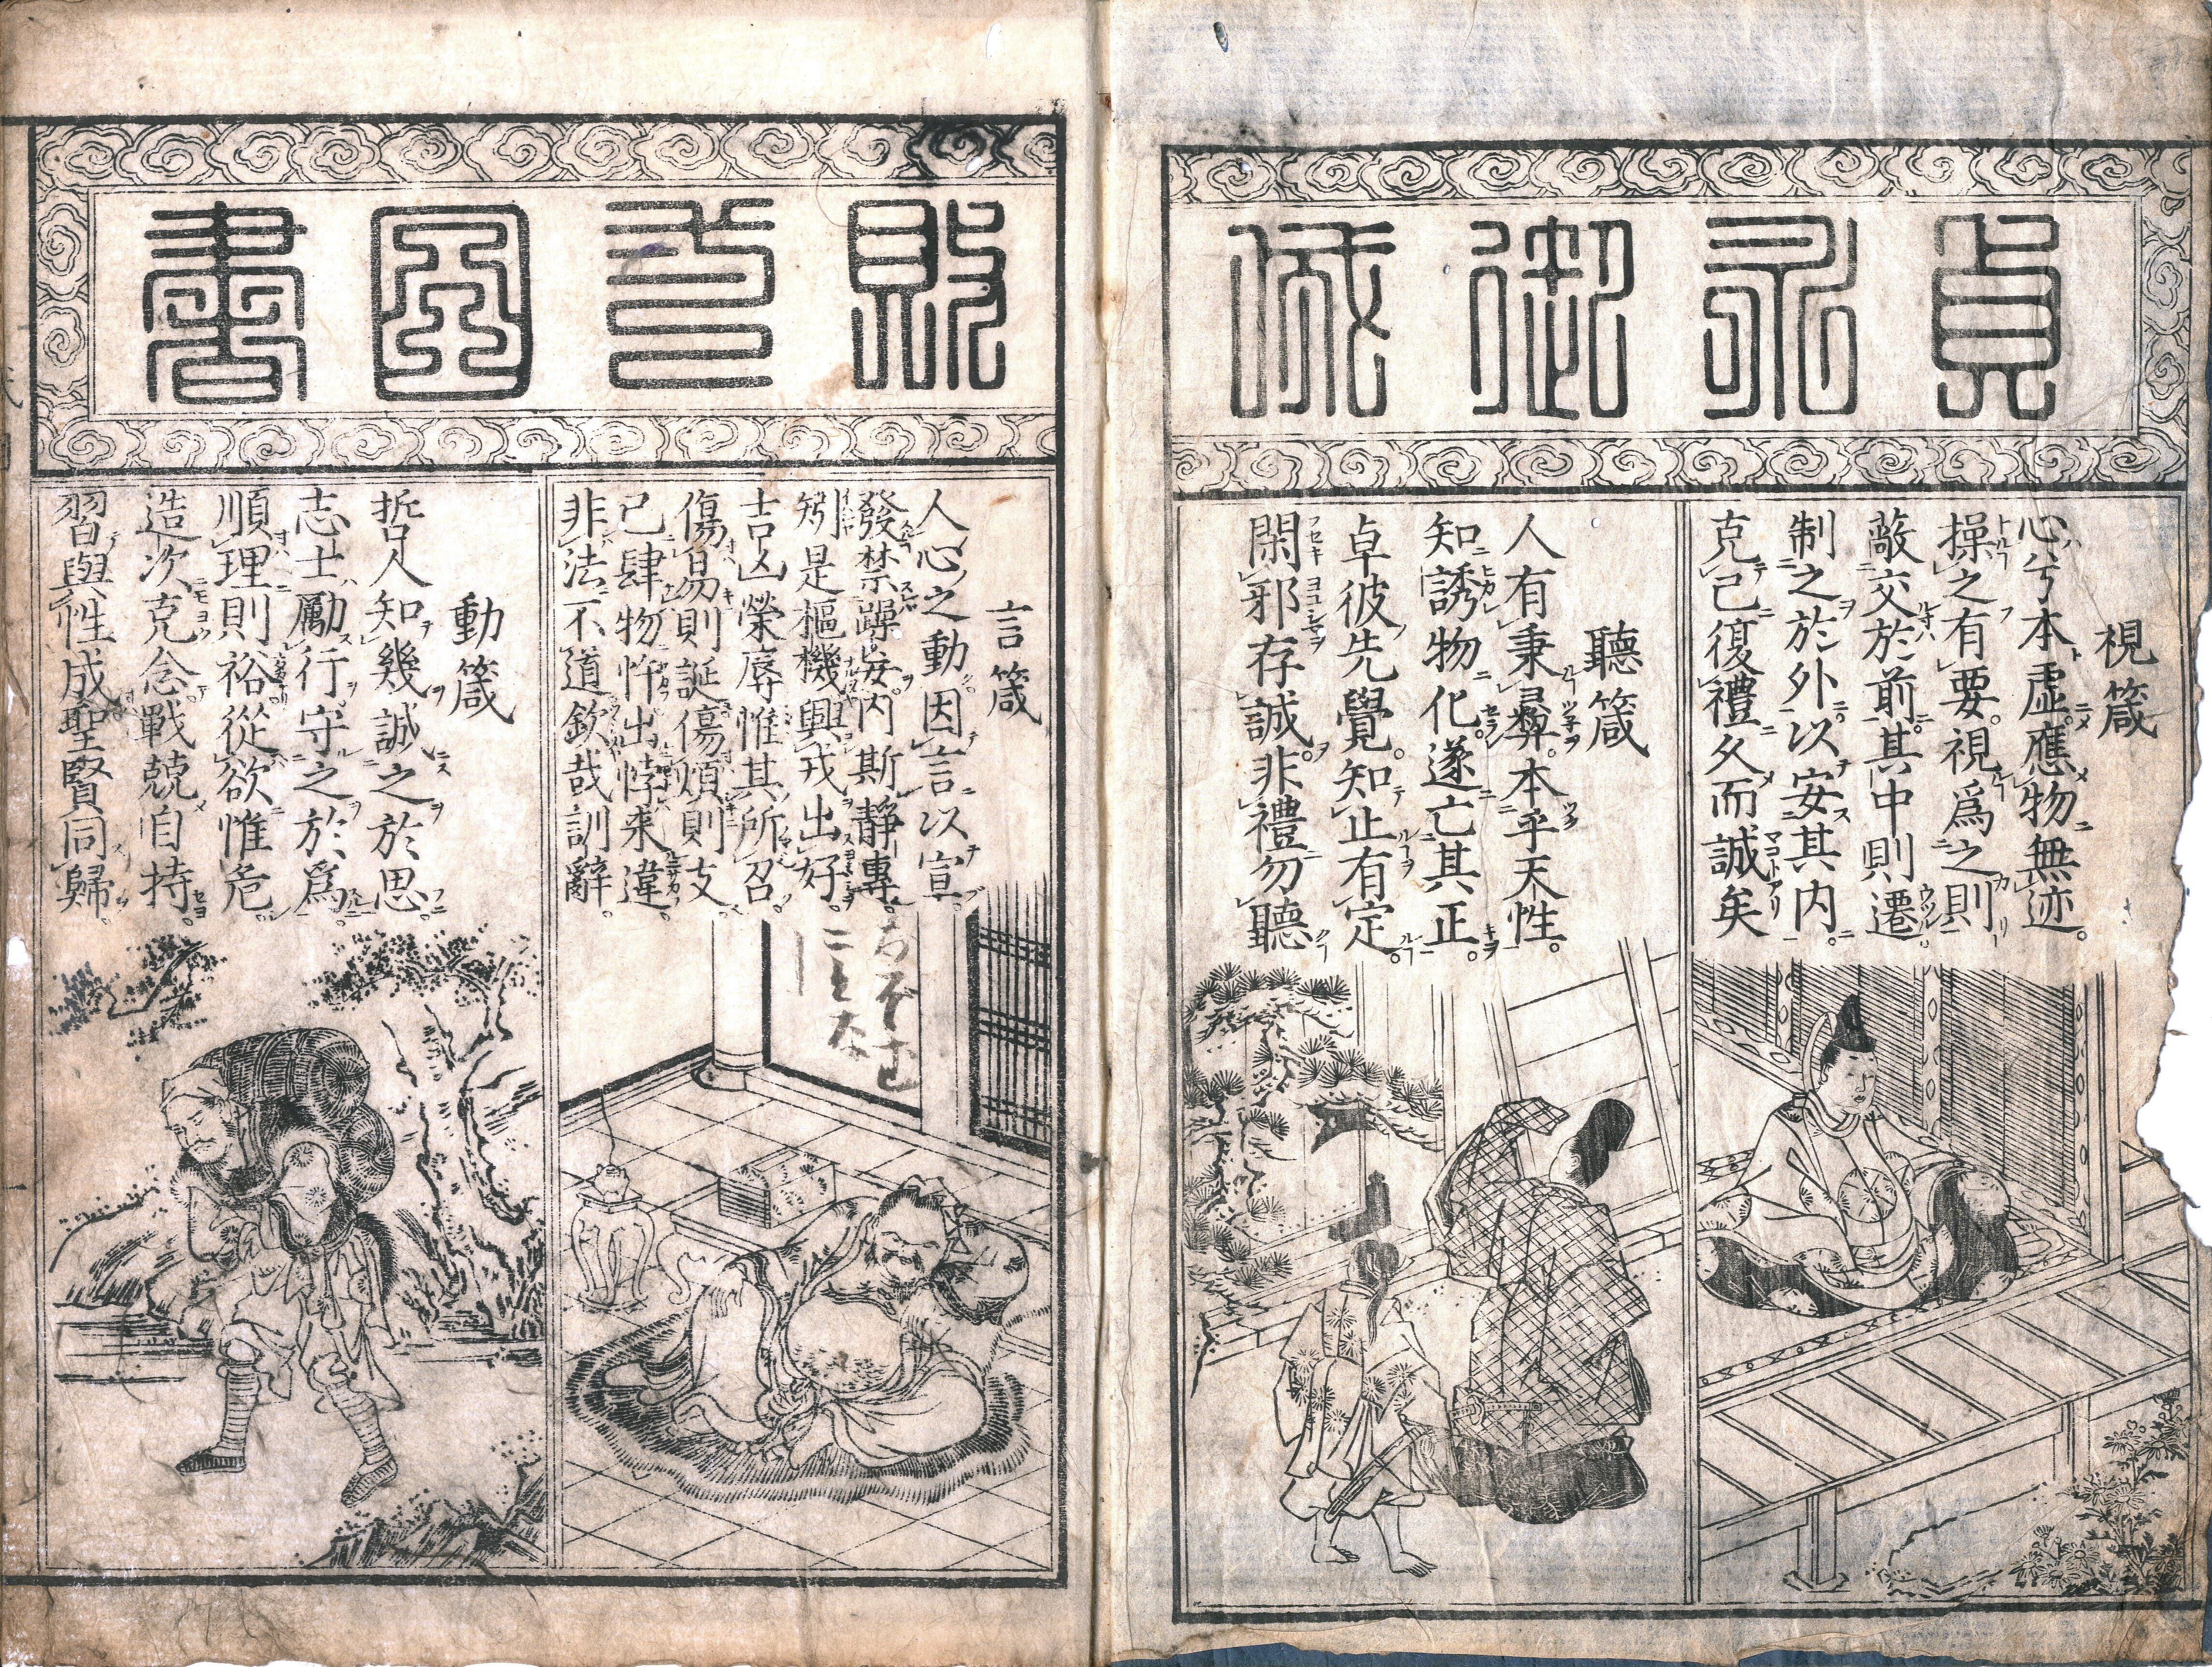 貞永御成
視箴
心兮本虚。應物無迹。
操之有要。視爲之則
敵交於前。其中則遷。
制之於外。以安其内。
克己復禮久而誠矣
聽箴
人有秉彝。本乎天性。
知誘物化。遂亡其正。
卓彼先覺。知止有定。
閑邪存誠。非禮勿聽
敗式目書
言箴
人心之動。因言以宣。
發禁躁妄。内斯静專。
矧是樞機興戎出好。
吉凶榮辱惟其所召。
傷易則誕傷煩則支
己肆物忤出悖来違。
非法不道欽哉訓辭。
動箴
哲人知幾誠之於思。
志士勵行。守之於爲。
順理則裕從欲惟危。
造次克念戰兢自持。
習與性成聖賢同歸。